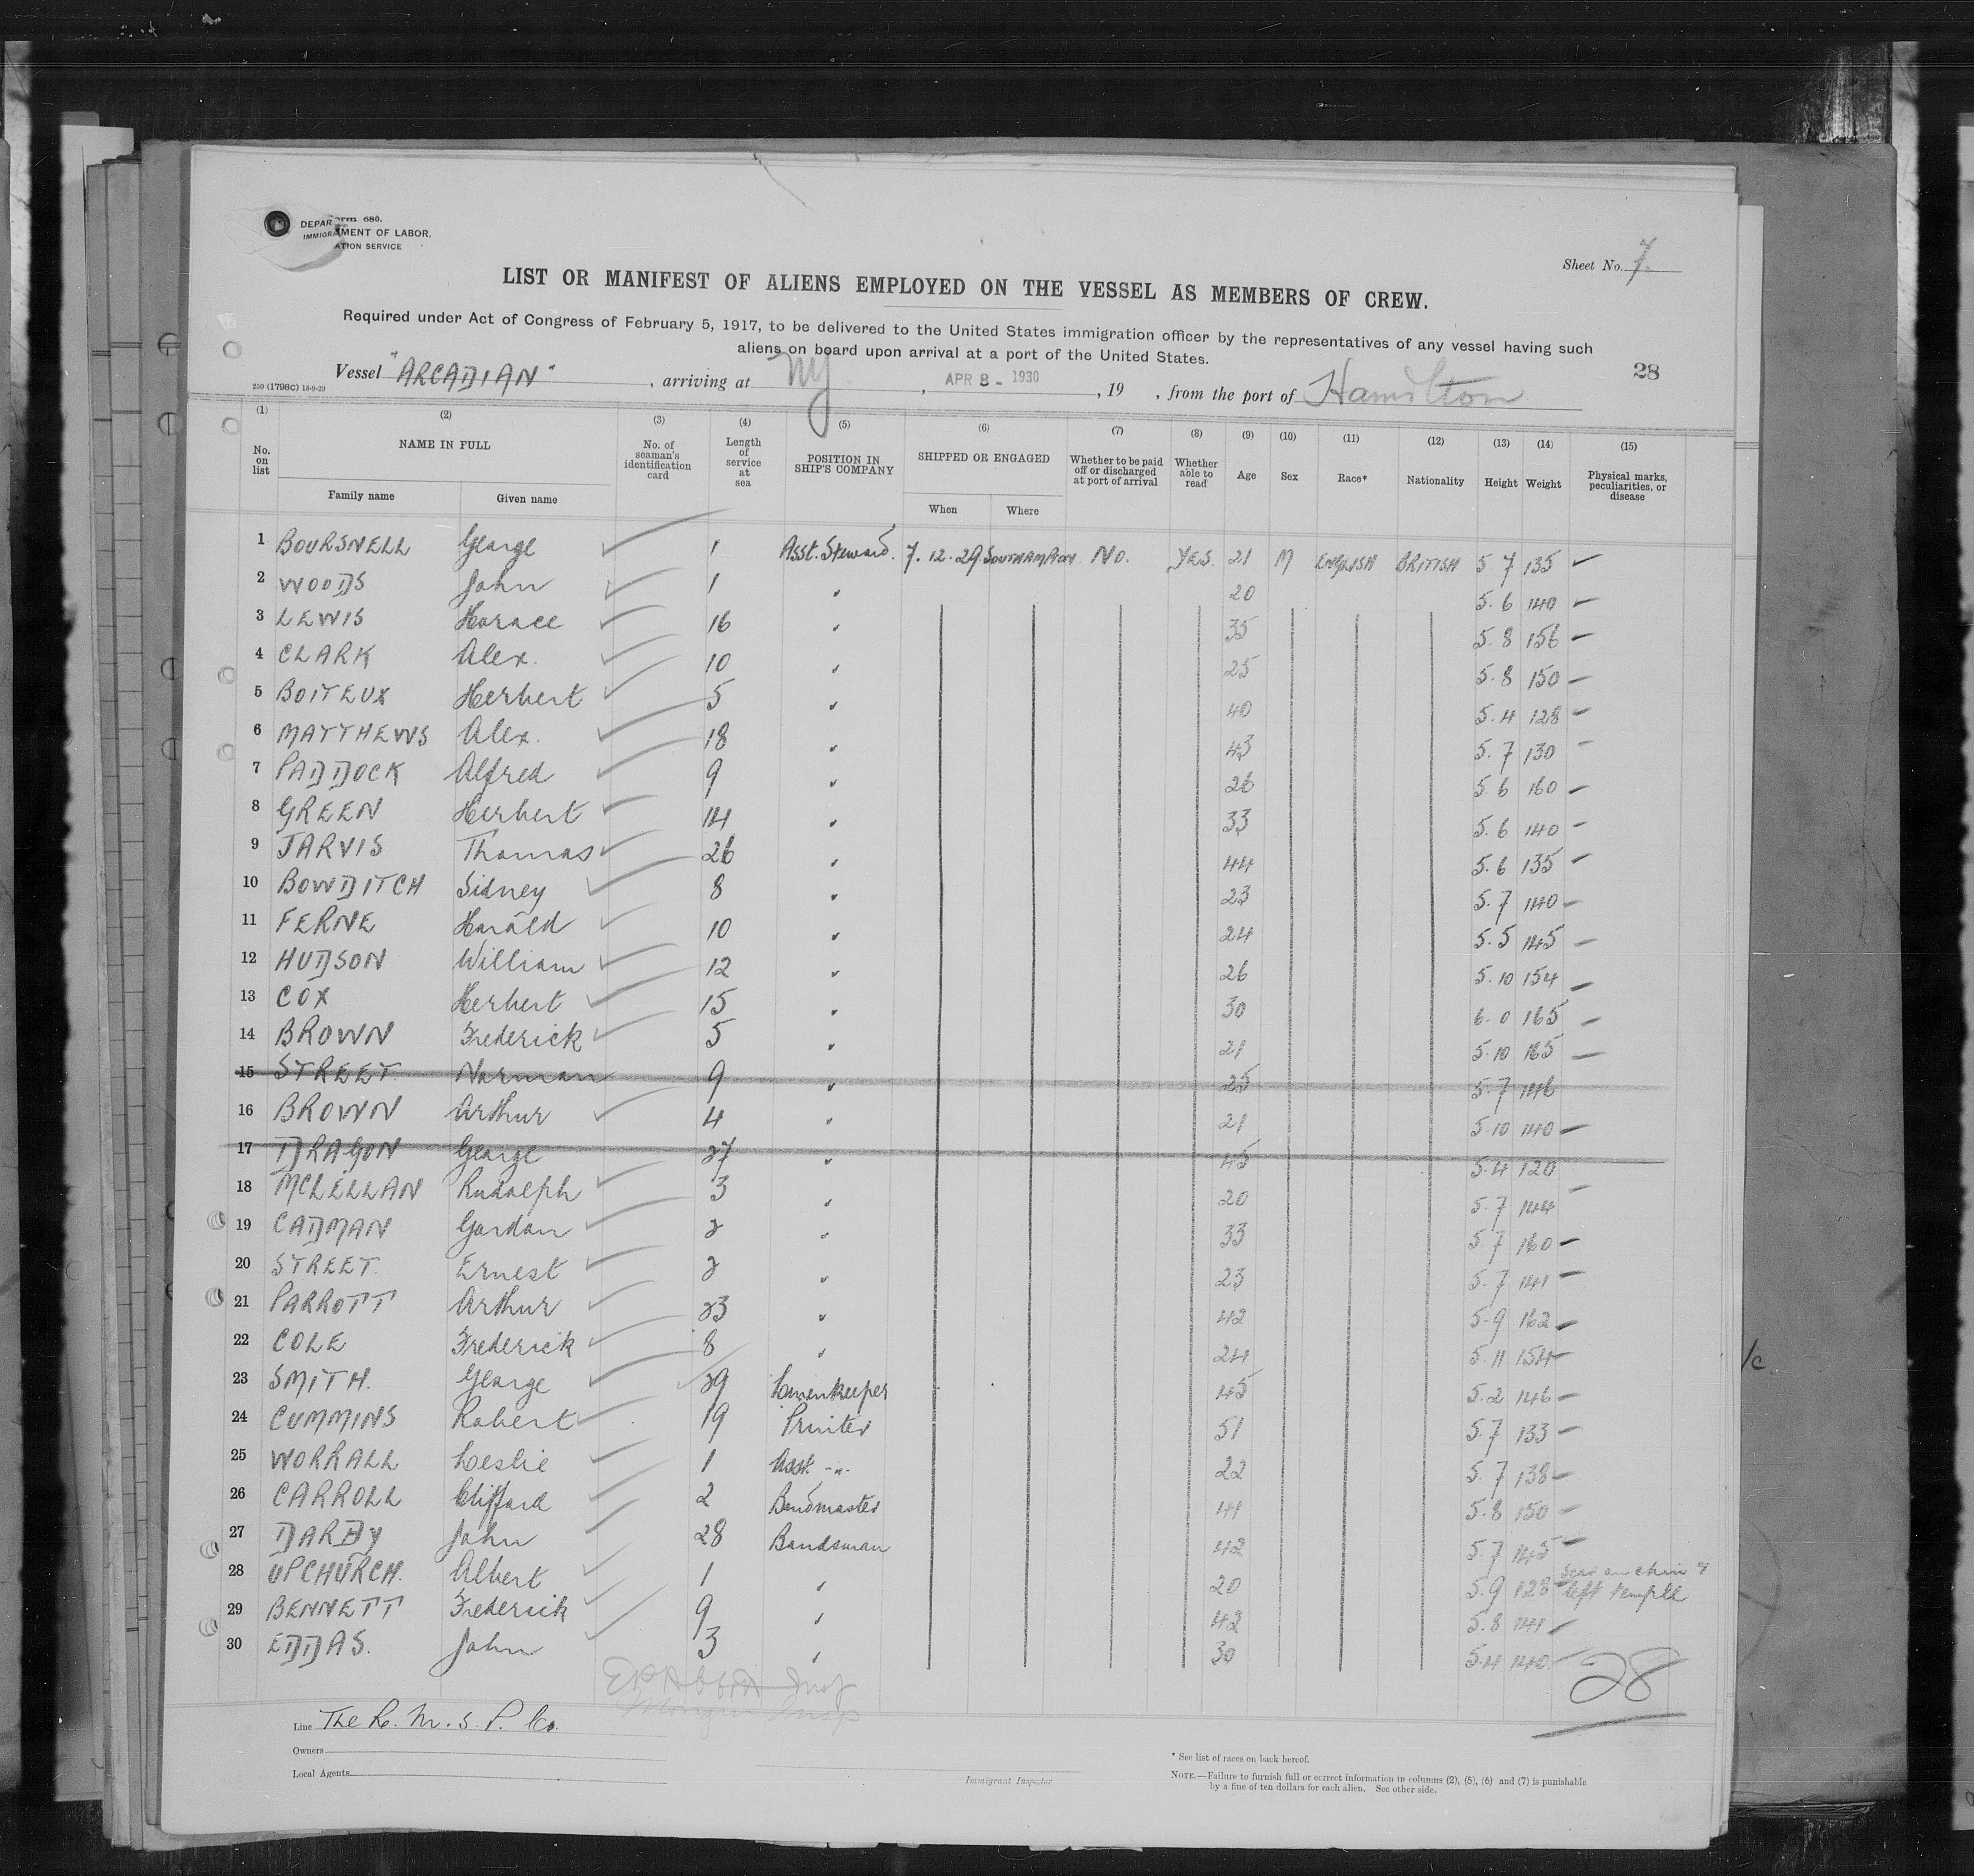 Form 680.
DEPARTMENT OF LABOR.
IMMIGRATION SERVICE
Sheet No. 7.
LIST OR MANIFEST OF ALIENS EMPLOYED ON THE VESSEL AS MEMBERS OF CREW.
Required under Act of Congress of February 5, 1917, to be delivered to the United States immigration officer by the representatives of any vessel having such
aliens on board upon arrival at a port of the United States.
28
250 (1798C) 18-9-29
Vessel "ARCADIAN", arriving at NY, APR 8 - 1930, 19 , from the port of Hamilton
(1) (2) (3) (4) (5) (6) (7) (8) (9) (10) (11) (12) (13) (14) (15)
No. on list NAME IN FULL Family name Given name No. of seaman's identification card Length of service at sea POSITION IN SHIP'S COMPANY SHIPPED OR ENGAGED When Where Whether to be paid off or discharged at port of arrival Whether able to read Age Sex Race* Nationality Height Weight Physical marks, peculiarities, or disease
1 BOURSNELL George 1 Asst. Steward. 7.12.29 SOUTHAMPTON NO. YES. 21 M ENGLISH BRITISH 5 7 135 —
2 WOODS John 1 " 20 5.6 140 —
3 LEWIS Horace 16 " 35 5.8 156 —
4 CLARK Alex. 10 " 25 5.8 150 —
5 BOITEUX Herbert 5 " 40 5.4 128 —
6 MATTHEWS Alex. 18 " 43 5.7 130 —
7 PADDOCK Alfred 9 " 26 5 6 160 —
8 GREEN Herbert 14 " 33 5.6 140 —
9 JARVIS Thomas 26 " 44 5.6 135 —
10 BOWDITCH Sidney 8 " 23 5.7 140 —
11 FERNE Harold 10 " 24 5.5 145 —
12 HUDSON William 12 " 26 5.10 154 —
13 COX Herbert 15 " 30 6.0 165 —
14 BROWN Frederick 5 " 21 5.10 165 —
15 STREET Norman 9 " 25 5.7 146
16 BROWN Arthur 4 " 21 5 10 140 —
17 DRAGON George 27 " 45 5.4 120
18 MCLELLAN Rudolph 3 " 20 5.7 144 —
19 CADMAN Gordon 2 " 33 5.7 160 —
20 STREET. Ernest 2 " 23 5.7 141 —
21 PARROTT Arthur 23 " 42 5.9 162 —
22 COLE Frederick 8 " 24 5.11 154 —
23 SMITH. George 29 Linenkeeper 45 5.2 146 —
24 CUMMINS Robert 19 Printer 51 5.7 133 —
25 WORRALL Leslie 1 Asst. -"- 22 5.7 138 —
26 CARROLL Clifford 2 Bandmaster 41 5.8 150 —
27 DARBY John 28 Bandsman 42 5.7 145 —
28 UPCHURCH. Albert 1 " 20 5.9 128 — Scar on chin & left temple
29 BENNETT Frederick 9 " 42 5.8 141 —
30 EDDAS. John 3 " 30 5.4 140
28
Line The R. M. S. P. Co.
Owners
Local Agents
Immigrant Inspector
* See list of races on back hereof.
NOTE.—Failure to furnish full or correct information in columns (2), (5), (6) and (7) is punishable
by a fine of ten dollars for each alien. See other side.